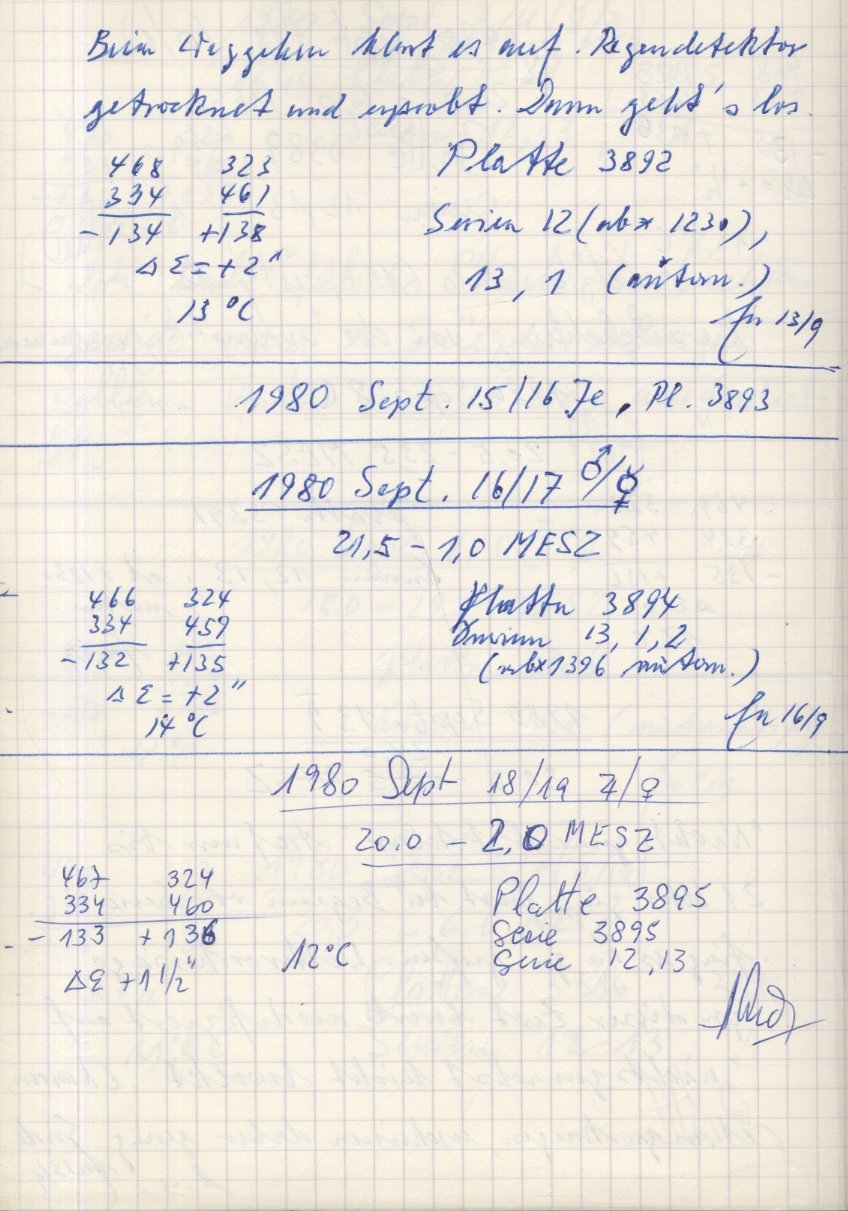 Beim Weggehen klart es auf. Regendetektor
getrocknet und erprobt. Dann geht's los.
468 323 Platte 3892
334 461
-134 +138 Serien 12 (ab * 1230),
Δ Σ = +2" 13, 1 (autom.)
13 °C
13/9
1980 Sept. 15/16 Je, Pl. 3893
1980 Sept. 16/17 ♂/☿
21,5 - 1,0 MESZ
466 324 Platte 3894
334 459 Serien 13, 1, 2
-132 +135 (ab*1396 autom.)
Δ Σ = +2"
14 °C
16/9
1980 Sept 18/19 ♃/♀
20.0 - 2,0 MESZ
467 324 Platte 3895
334 460 Serie 3895
-133 +136 12°C Serie 12,13
Δ Σ +1 1/2"